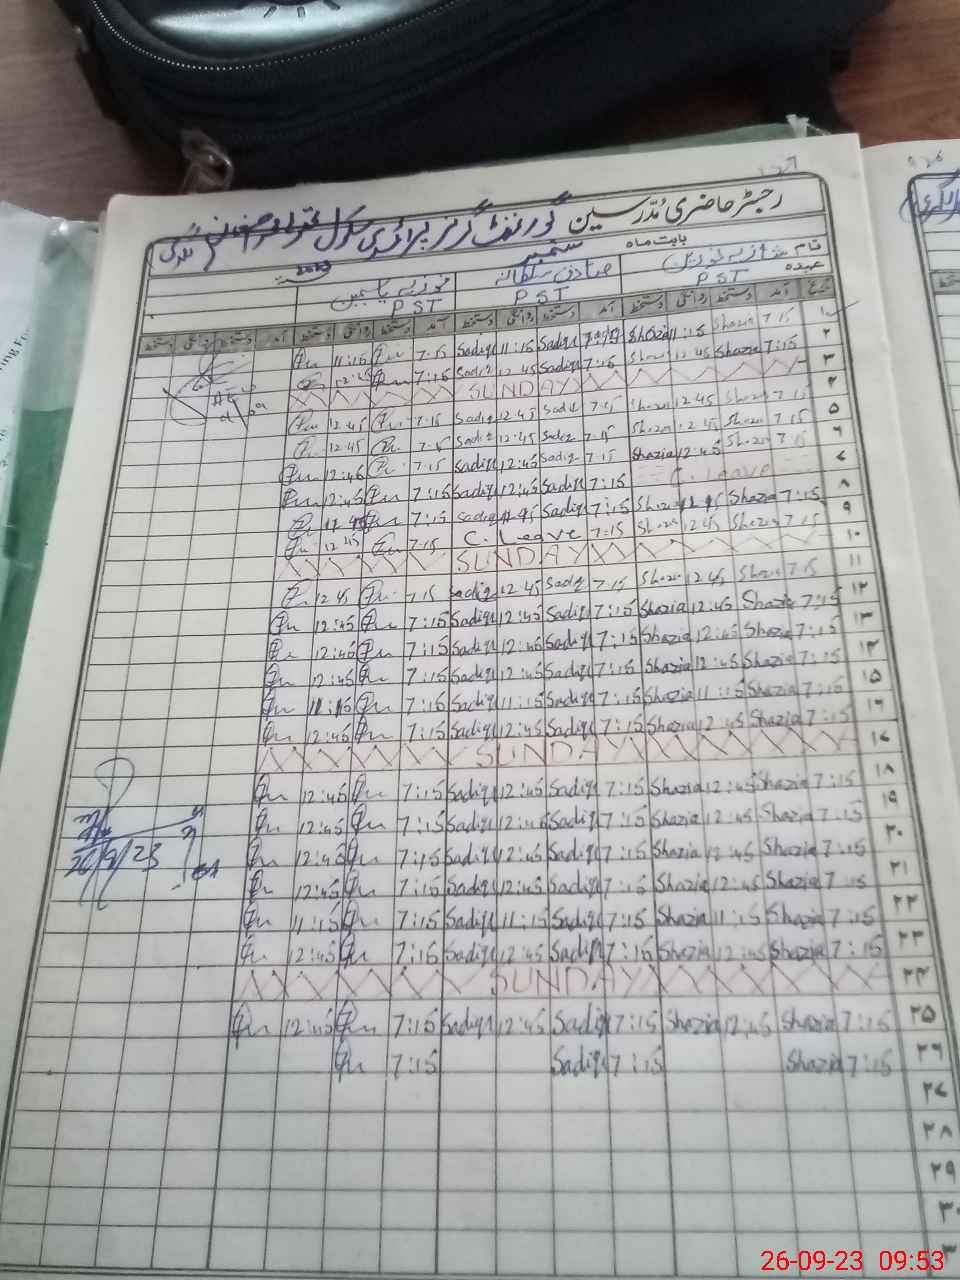 رجسٹر حاضری مدرسین گورنمنٹ گرلز پرائمری سکول
بابت ماہ ستمبر 2023
نام شازیہ نورین صادق سلطانہ فوزیہ یاسمین
عہدہ PST PST PST
تاریخ آمد دستخط روانگی دستخط آمد دستخط روانگی دستخط آمد دستخط روانگی دستخط آمد دستخط روانگی دستخط
۱ 7:15 Shazia 11:15 Shazia Sadiq 11:15 Sadiq 7:15 11:15
۲ 7:15 Shazia 12:45 Shazia 7:15 Sadiq 12:45 Sadiq 7:15 12:45
۳ SUNDAY
۴ 7:15 Shazia 12:45 Shazia 7:15 Sadiq 12:45 Sadiq 7:15 12:45
۵ 7:15 Shazia 12:45 Shazia 7:15 Sadiq 12:45 Sadiq 7:15 12:45
۶ 7:15 Shazia 12:45 Shazia 7:15 Sadiq 12:45 Sadiq 7:15 12:45
۷ C. Leave 7:15 Sadiq 12:45 Sadiq 7:15 12:45
۸ 7:15 Shazia Shazia 7:15 Sadiq Sadiq 7:15
۹ 7:15 Shazia 12:45 Shazia 7:15 C. Leave 7:15 12:45
۱۰ SUNDAY
۱۱ 7:15 Shazia 12:45 Shazia 7:15 Sadiq 12:45 Sadiq 7:15 12:45
۱۲ 7:15 Shazia 12:45 Shazia 7:15 Sadiq 12:45 Sadiq 7:15 12:45
۱۳ 7:15 Shazia 12:45 Shazia 7:15 Sadiq 12:45 Sadiq 7:15 12:45
۱۴ 7:15 Shazia 12:45 Shazia 7:15 Sadiq 12:45 Sadiq 7:15 12:45
۱۵ 7:15 Shazia 11:15 Shazia 7:15 Sadiq 11:15 Sadiq 7:15 11:15
۱۶ 7:15 Shazia 12:45 Shazia 7:15 Sadiq 12:45 Sadiq 7:15 12:45
۱۷ SUNDAY
۱۸ 7:15 Shazia 12:45 Shazia 7:15 Sadiq 12:45 Sadiq 7:15 12:45
۱۹ 7:15 Shazia 12:45 Shazia 7:15 Sadiq 12:45 Sadiq 7:15 12:45
۲۰ 7:15 Shazia 12:45 Shazia 7:15 Sadiq 12:45 Sadiq 7:15 12:45
26/9/23
۲۱ 7:15 Shazia 12:45 Shazia 7:15 Sadiq 12:45 Sadiq 7:15 12:45
۲۲ 7:15 Shazia 11:15 Shazia 7:15 Sadiq 11:15 Sadiq 7:15 11:15
۲۳ 7:15 Shazia 12:45 Shazia 7:15 Sadiq 12:45 Sadiq 7:15 12:45
۲۴ SUNDAY
۲۵ 7:15 Shazia 12:45 Shazia 7:15 Sadiq 12:45 Sadiq 7:15 12:45
۲۶ 7:15 Shazia 7:15 Sadiq 7:15
۲۷
۲۸
۲۹
۳۰
26-09-23 09:53